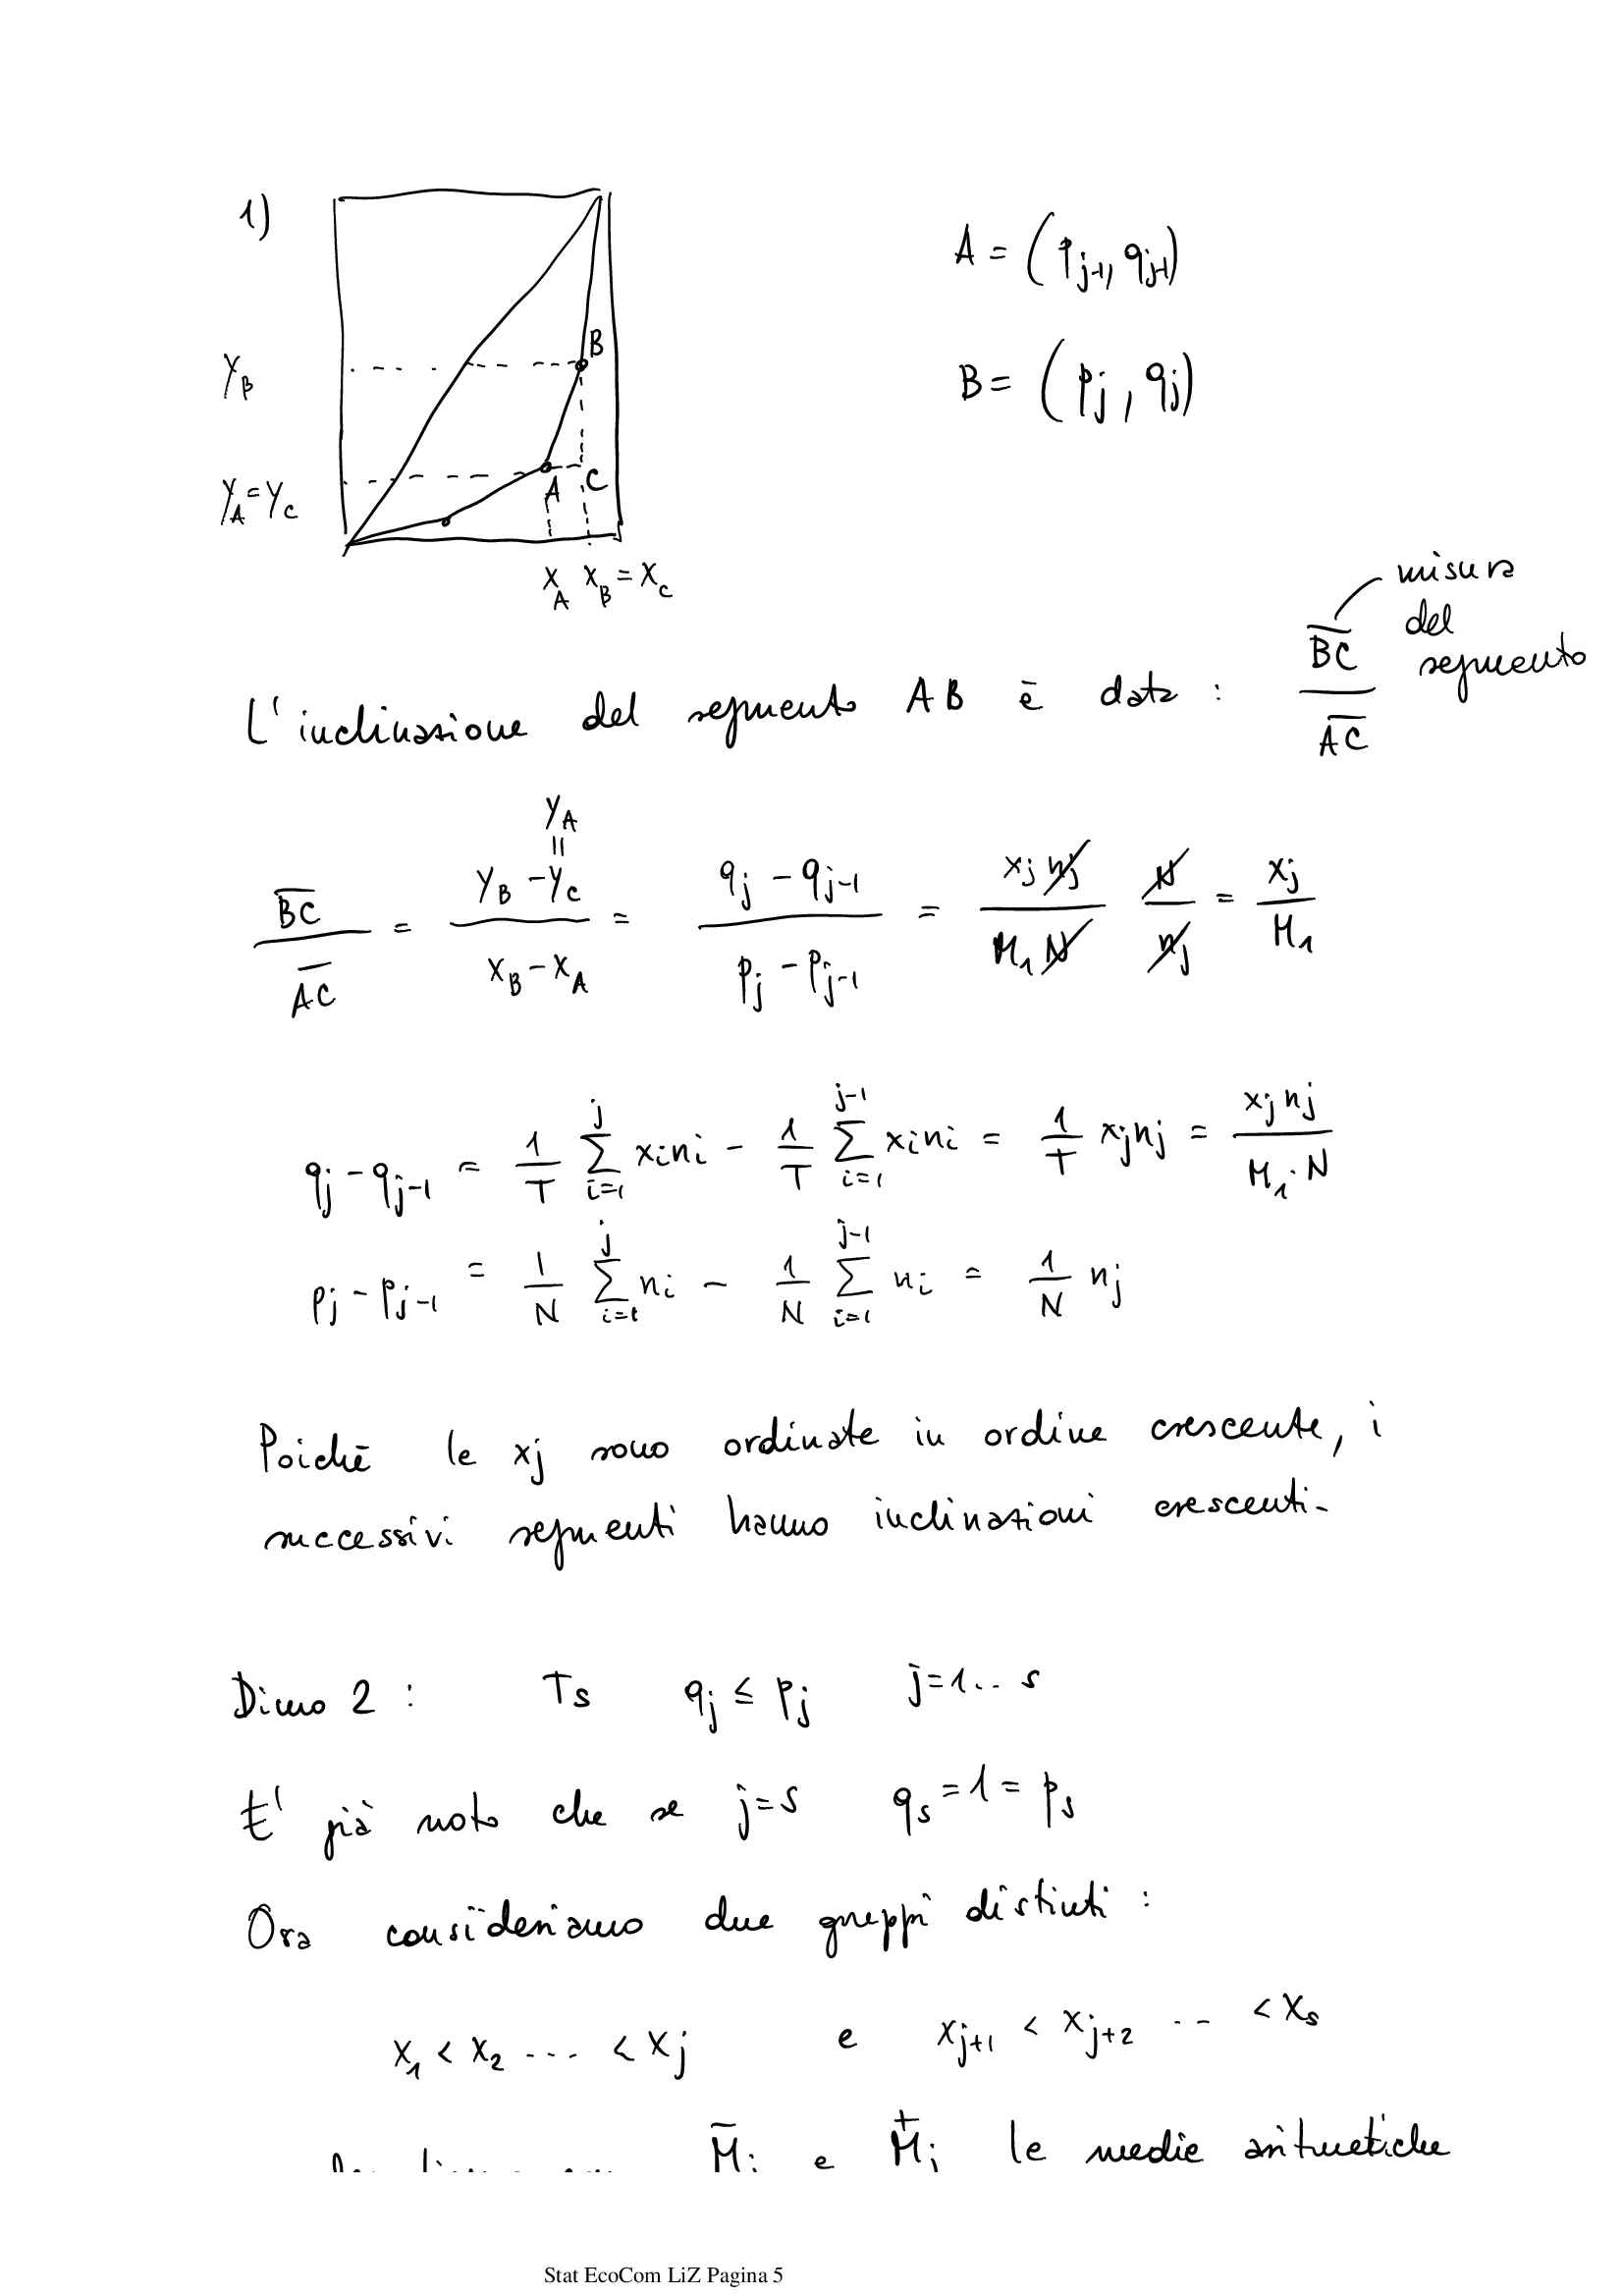 1)
A = (p_{j-1}, q_{j-1})
B = (p_j, q_j)
B
y_B
A C
y_A = y_C
x_A x_B = x_C
misura
del
segmento
L'inclinazione del segmento AB è data : \overline{BC} / \overline{AC}
y_A
=
\overline{BC} / \overline{AC} = (y_B - y_C) / (x_B - x_A) = (q_j - q_{j-1}) / (p_j - p_{j-1}) = (x_j n_j) / (M_1 N) N / n_j = x_j / M_1
q_j - q_{j-1} = 1/T \sum_{i=1}^{j} x_i n_i - 1/T \sum_{i=1}^{j-1} x_i n_i = 1/T x_j n_j = (x_j n_j) / (M_1 · N)
p_j - p_{j-1} = 1/N \sum_{i=1}^{j} n_i - 1/N \sum_{i=1}^{j-1} n_i = 1/N n_j
Poiché le x_j sono ordinate in ordine crescente, i
successivi segmenti hanno inclinazioni crescenti.
Dimo 2 : Ts q_j ≤ p_j j=1.. s
E' già noto che se j=s q_s = 1 = p_s
Ora consideriamo due gruppi distinti :
x_1 < x_2 ... < x_j e x_{j+1} < x_{j+2} .. < x_s
\bar{M}_j e \overset{+}{M}_j le medie aritmetiche
Stat EcoCom LiZ Pagina 5